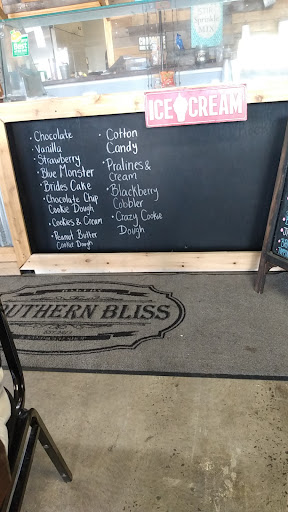 Best
Sprinkle
MIX
ICE CREAM
• Chocolate
• Vanilla
• Strawberry
• Blue Monster
• Brides Cake
• Chocolate Chip
Cookie Dough
• Cookies & Cream
• Peanut Butter
Cookie Dough
• Cotton
Candy
• Pralines &
Cream
• Blackberry
Cobbler
• Crazy Cookie
Dough
BAKERY
OUTHERN BLISS